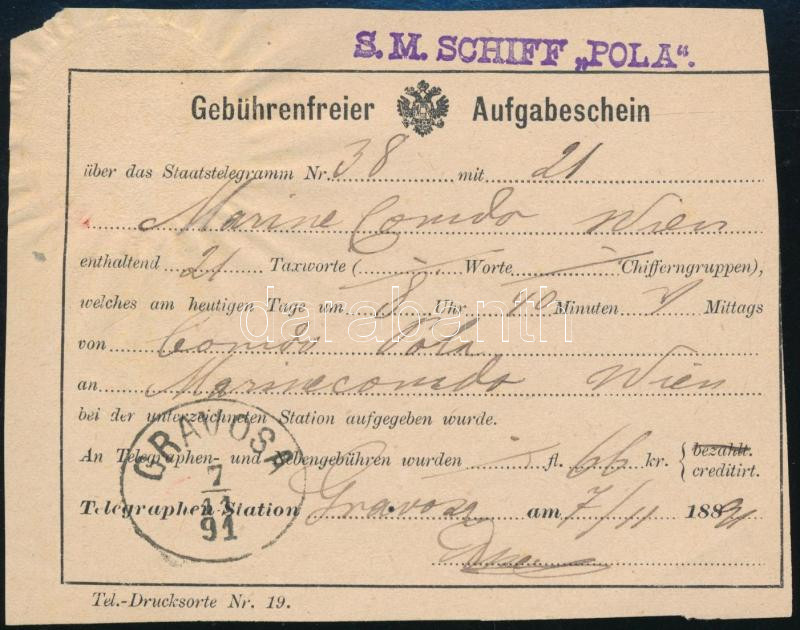 S. M. SCHIFF „POLA“.
Gebührenfreier Aufgabeschein
über das Staatstelegramm Nr. 38 mit 21
Marine Comdo Wien
enthaltend 21 Taxworte ( / Worte / Chifferngruppen),
welches am heutigen Tage um 8 Uhr 40 Minuten Mittags
von Comdo Pola
an Marinecomdo Wien
bei der unterzeichneten Station aufgegeben wurde.
An Telegraphen- und Nebengebühren wurden / fl. 66 kr. { bezahlt.
creditirt.
Telegraphen-Station Gravosa am 7/11 1891
GRAVOSA
7
11
91
Tel.-Drucksorte Nr. 19.
darabanth